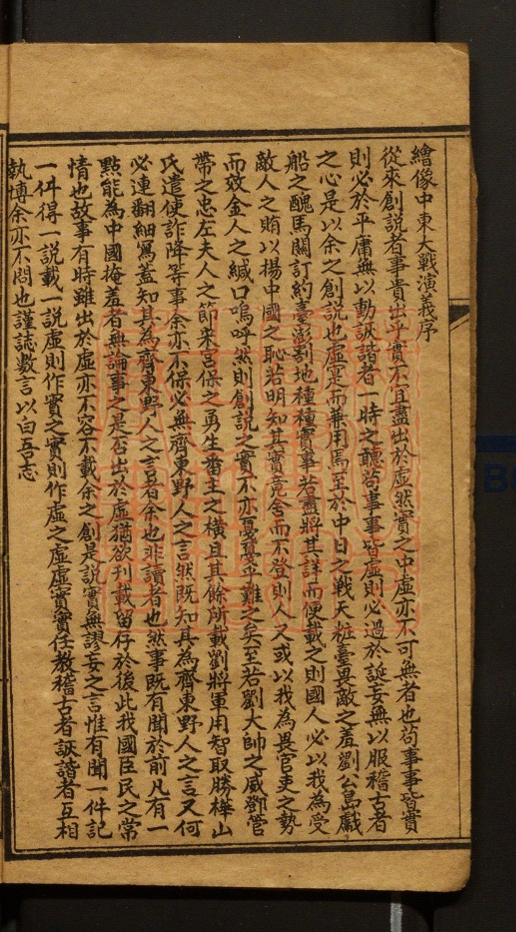 繪像中東大戰演義序
從來創説者事貴出乎實不宜盡出於虛然實之中虛亦不可無者也苟事事皆實
則必於平庸無以動詼諧者一時之聽苟事事皆虛則必過於誕妄無以服稽古者
之心是以余之創説也虛寔而兼用焉至於中日之戰天粧臺畏敵之羞劉公島獻
船之醜馬關訂約臺澎割地種種實事若盡將其詳而便載之則國人必以我為受
敵人之賄以揚中國之恥若明知其實竟舍而不登則人又或以我為畏官吏之勢
而效金人之緘口嗚呼然則創説之實不亦戞戞乎難之矣至若劉大帥之威鄧管
帶之忠左夫人之節宋宮保之勇生番主之橫且其餘所載劉將軍用智取勝樺山
氏遣使詐降等事余亦不保必無齊東野人之言然既知其為齊東野人之言又何
必連翻細寫蓋知其為齊東野人之言者余也非讀者也然事既有聞於前凡有一
點能為中國掩羞者無論事之是否出於虛猶欲刊載留存於後此我國臣民之常
情也故事有時雖出於虛亦不容不載余之創是說實無謬妄之言惟有聞一件記
一件得一説載一説虛則作實之實則作虛之虛虛實實任教稽古者詼諧者互相
執博余亦不問也謹誌數言以白吾志